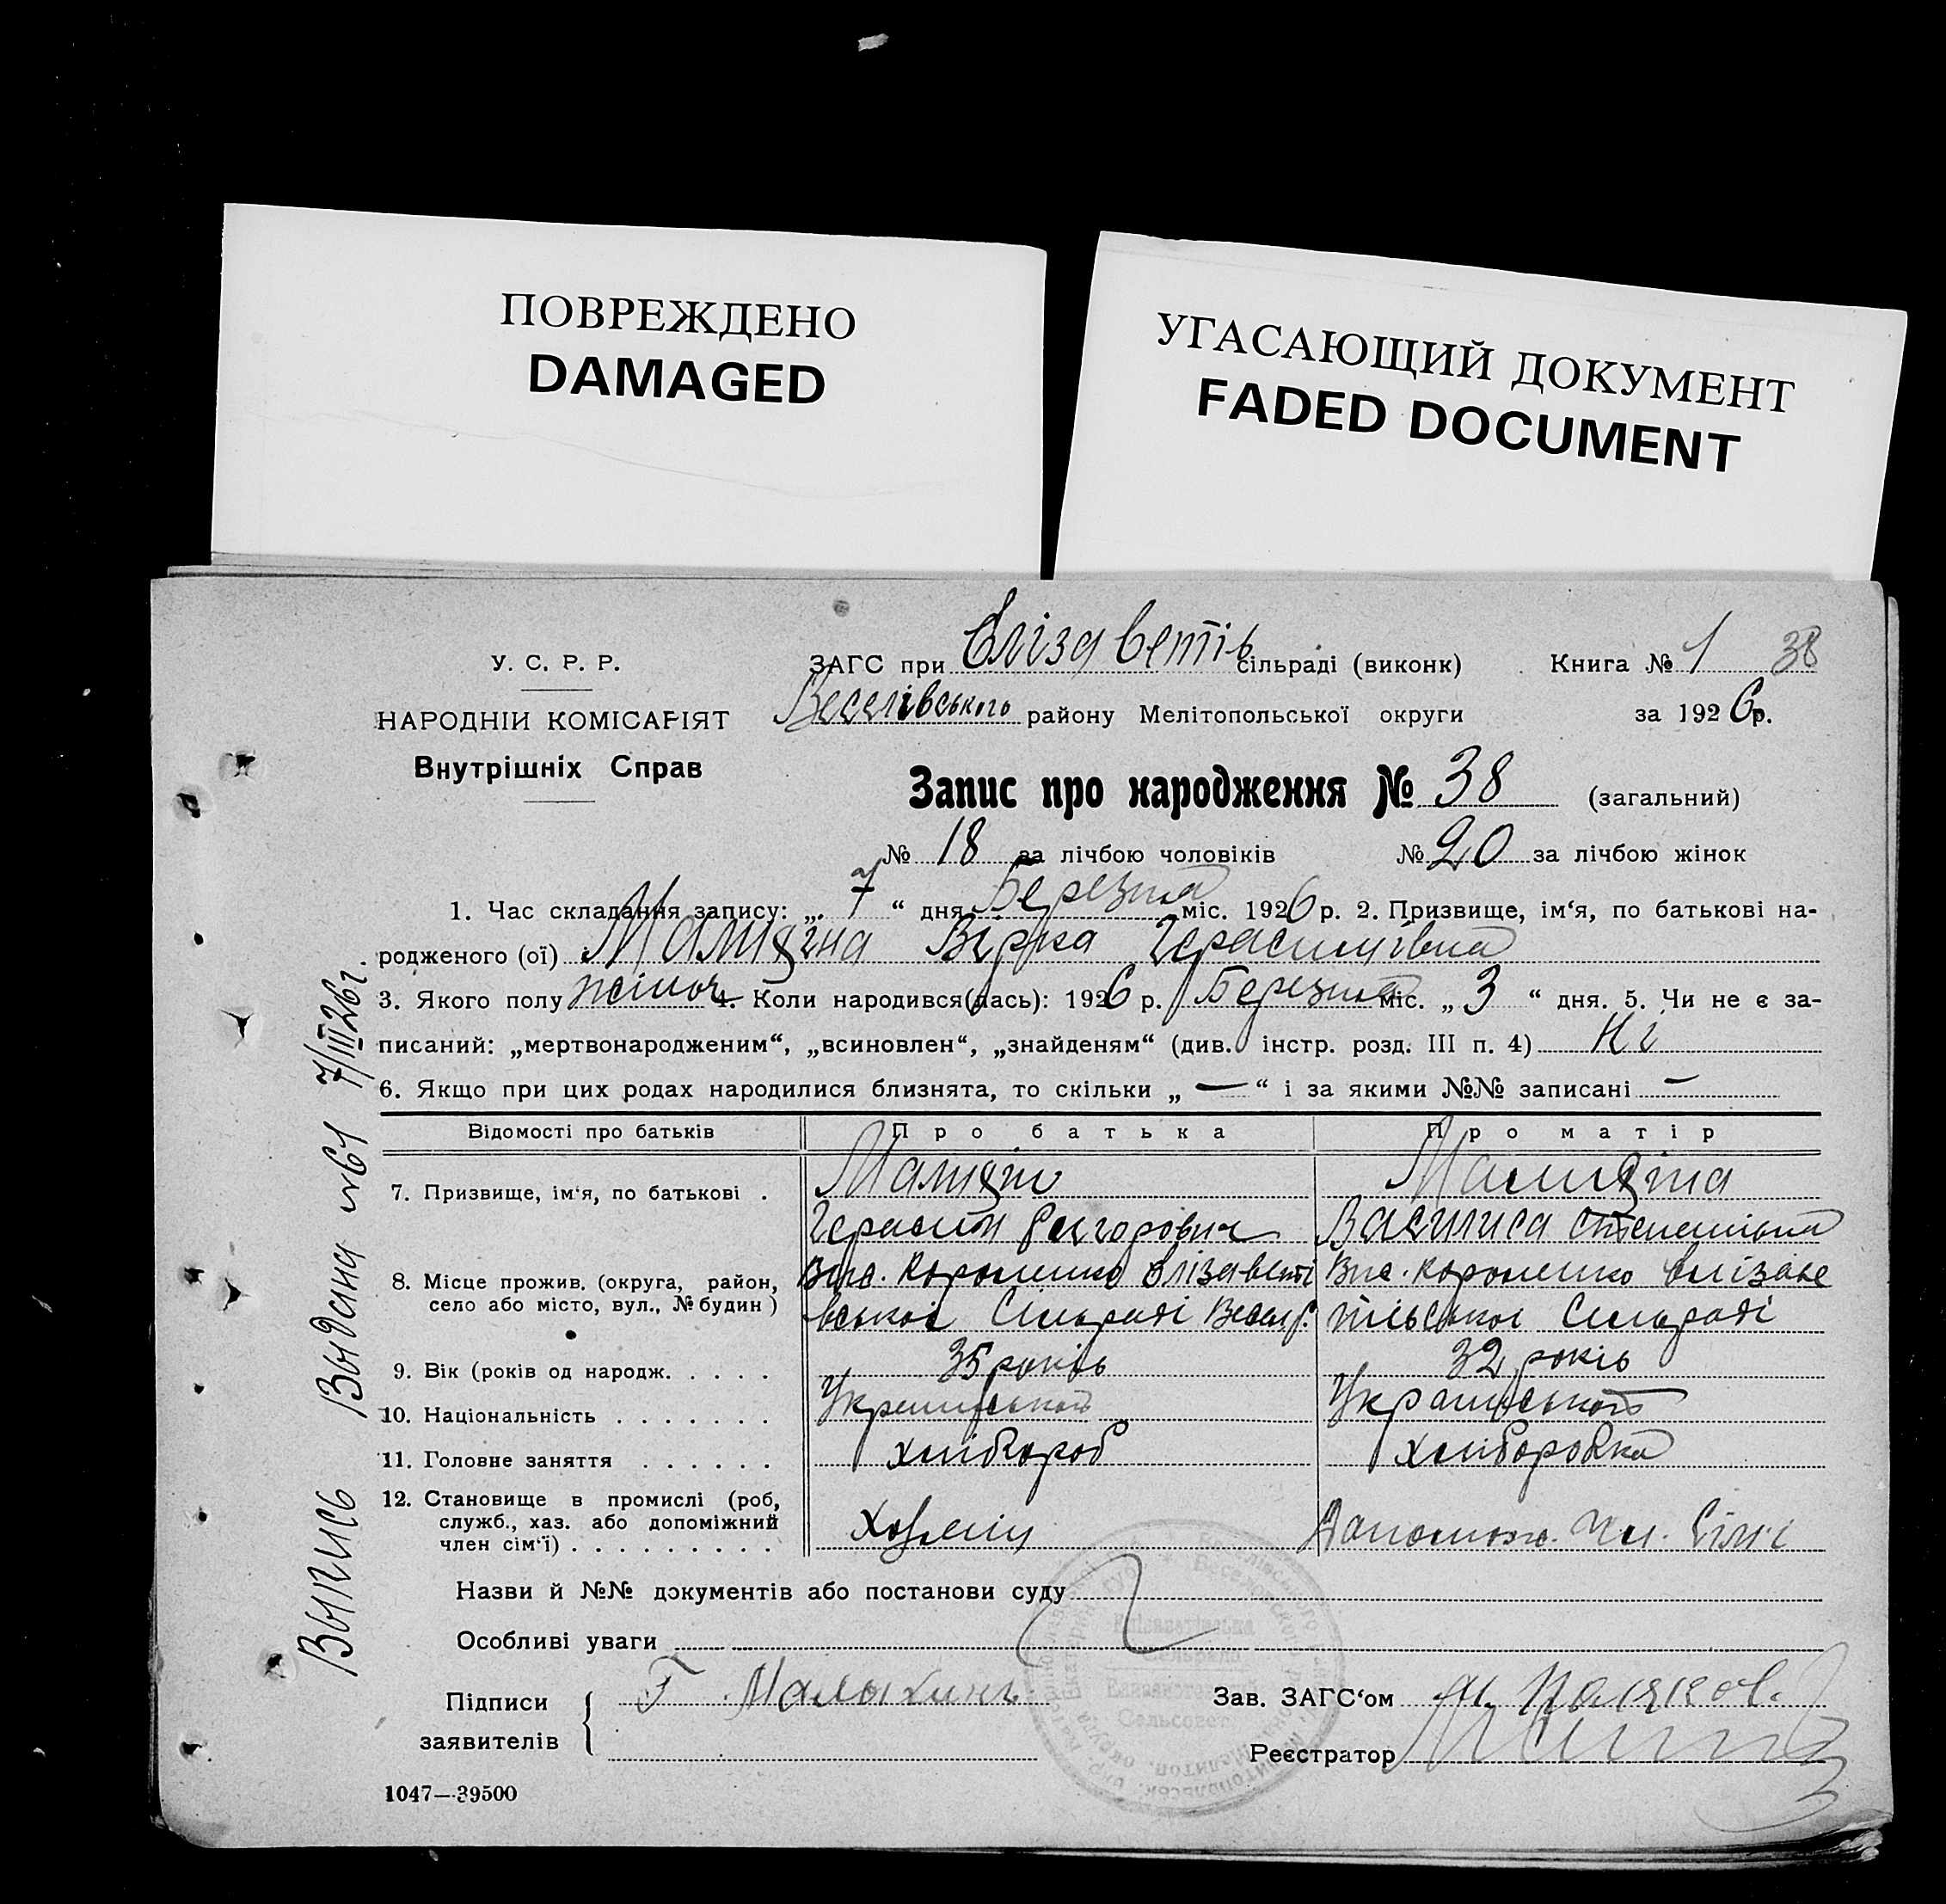 ПОВРЕЖДЕНО
DAMAGED
УГАСАЮЩИЙ ДОКУМЕНТ
FADED DOCUMENT
У. С. Р. Р.
НАРОДНІЙ КОМІСАРІЯТ
Внутрішніх Справ
ЗАГС при Єлізаветів сільраді (виконк) Книга № 1 38
Веселівського району Мелітопольської округи за 1926 р.
Запис про народження № 38 (загальний)
№ 18 за лічбою чоловіків № 20 за лічбою жінок
1. Час складання запису: „ 7 “ дня Березня міс. 1926 р. 2. Призвище, ім‘я, по батькові на-
родженого (ої) Вірка Герасимівна
3. Якого полу жіноч 4. Коли народився(лась): 1926 р. Березня міс. „ 3 “ дня. 5. Чи не є за-
писаний: „мертвонародженим“, „всиновлен“, „знайденям“ (див. інстр. розд. III п. 4) Ні
6. Якщо при цих родах народилися близнята, то скільки „ — “ і за якими №№ записані —
Відомості про батьків Про батька Про матір
7. Призвище, ім‘я, по батькові .
Герасим Григорович Василиса
8. Місце прожив. (округа, район,
село або місто, вул., № будин)
Сільраді Сільраді
9. Вік (років од народж. . . . . 35 років 32 років
10. Національність . . . . . . . Української Української
11. Головне заняття . . . . . . хлібороб хліборобка
12. Становище в промислі (роб,
служб., хаз. або допоміжний
член сім‘ї) . . . . . . . . . Хозяїн Допомож. чл. сімї
Назви й №№ документів або постанови суду
Особливі уваги
Підписи
заявителів
Г Малыхинъ
Зав. ЗАГС‘ом
Реєстратор
1047—39500
Выпись Выдана №61 7/III 26 г.